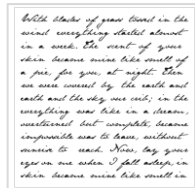 With blades of grass tossed in the
wind everything started almost
in a week. The scent of your
skin became mine like smell of
a pie, for you, at night. Then
we were covered by the earth and
earth and the sky our crib; in the
everything was like in a dream,
sweetened but complete, became
impossible was to leave, without
sunrise to reach. Now, lay your
eyes on me when I fall asleep, in
skin became mine like smell in